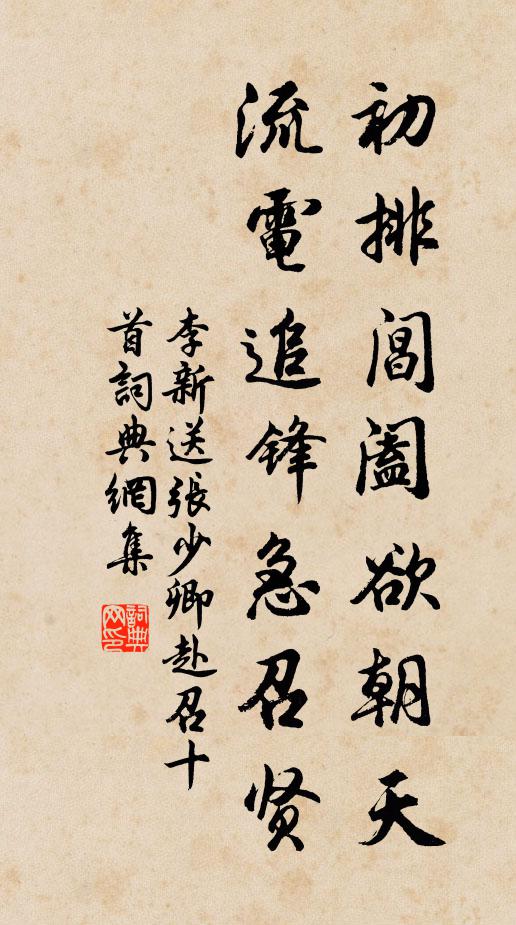 初排閶闔欲朝天
流電追鋒急召贤
李新送張少卿赴召十
首詞典網集
詞典网印